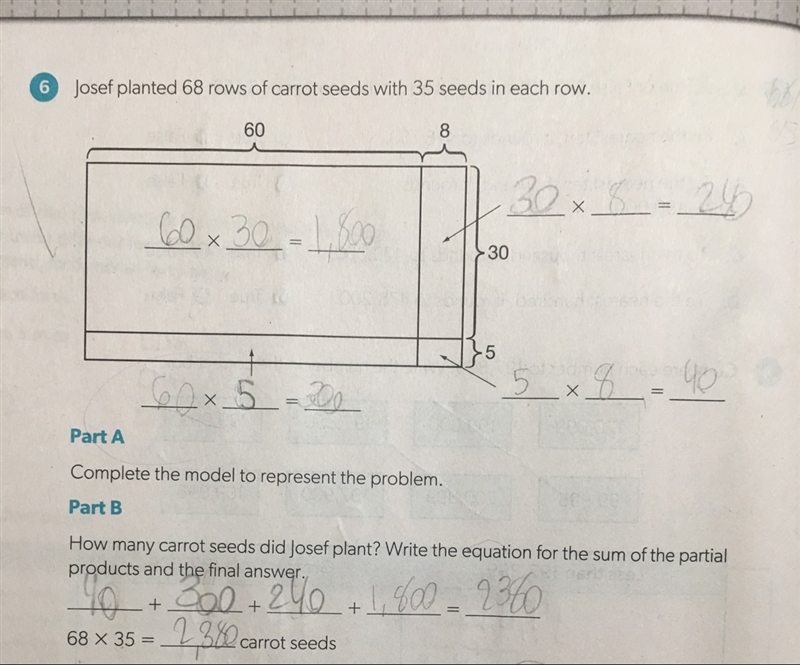 6 Josef planted 68 rows of carrot seeds with 35 seeds in each row.
60 8
30 × 8 = 240
60 × 30 = 1,800
30
5
5 × 8 = 40
60 × 5 = 300
Part A
Complete the model to represent the problem.
Part B
How many carrot seeds did Josef plant? Write the equation for the sum of the partial
products and the final answer.
40 + 300 + 240 + 1,800 = 2360
68 × 35 = 2,380 carrot seeds